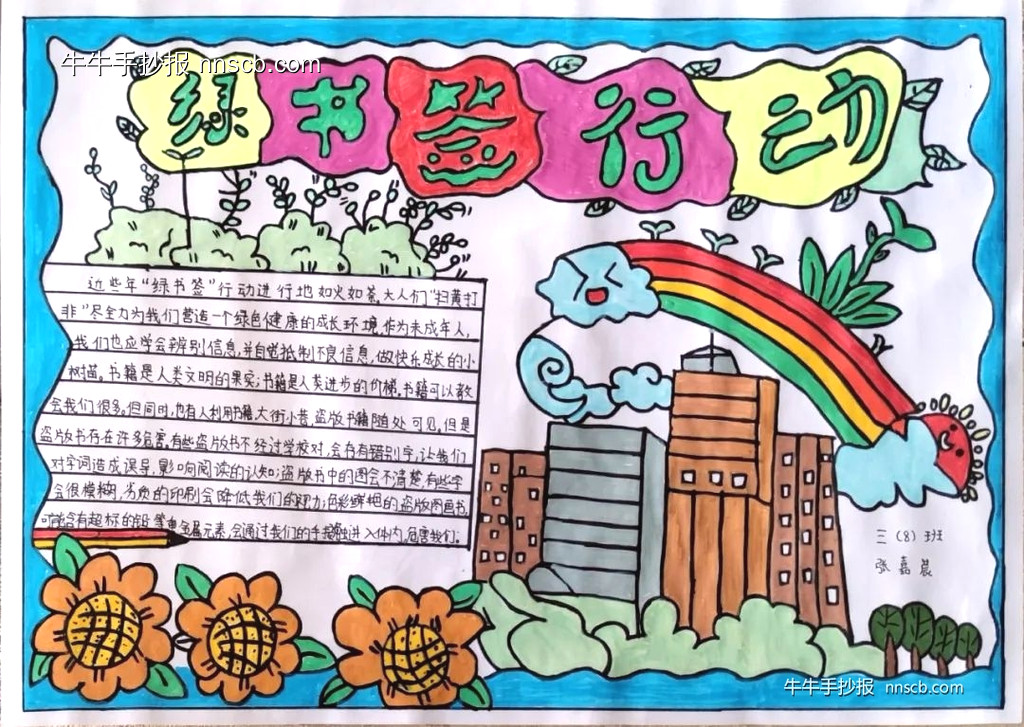 牛牛手抄报 nnscb.com
绿书签行动
近些年“绿书签”行动进行地如火如荼,大人们“扫黄打
非”尽全力为我们营造一个绿色健康的成长环境,作为未成年人,
我们也应学会辨别信息,并自觉抵制不良信息,做快乐成长的小
树苗。书籍是人类文明的果实;书籍是人类进步的阶梯。书籍可以教
会我们很多。但同时,也有人利用书籍,大街小巷,盗版书籍随处可见,但是
盗版书存在许多危害。有些盗版书不经过学校对,会有有错别字,让我们
对字词造成误导,影响阅读的认知;盗版书中的图会不清楚,有些字
会很模糊,劣质的印刷会降低我们的视力;色彩鲜艳的盗版图画书,
可能含有超标的铅等重金属元素,会通过我们的手接触进入体内,危害我们。
三(8)班
张嘉晨
牛牛手抄报 nnscb.com